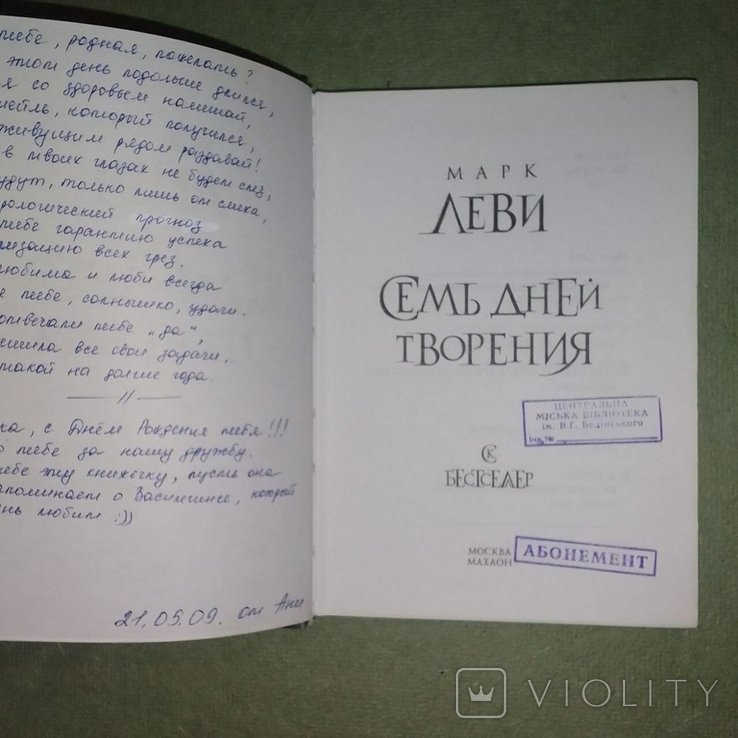 тебе, родная, пожелать?
этот день подольше длился,
я со здоровьем налишай,
который получился,
живущим рядом раздавай!
в твоих глазах не будет слез,
будут, только лишь от смеха,
прогноз
тебе гарантию успеха
всех грез.
любима и люби всегда
тебе, солнышко, удачи.
отвечали тебе „да",
все свои задачи.
такой на долгие года.
//
с Днём Рождения тебя!!!
тебе за нашу дружбу.
эту книжечку, пусть она
напоминает о который
любит :))
21.05.09. от Ани
МАРК
ЛЕВИ
СЕМЬ ДНЕЙ
ТВОРЕНИЯ
ЦЕНТРАЛЬНА
МІСЬКА БІБЛІОТЕКА
ім. В.Г. Бєлінського
Інв.№
СК
БЕСТСЕЛЛЕР
МОСКВА
МАХАОН
АБОНЕМЕНТ
VIOLITY